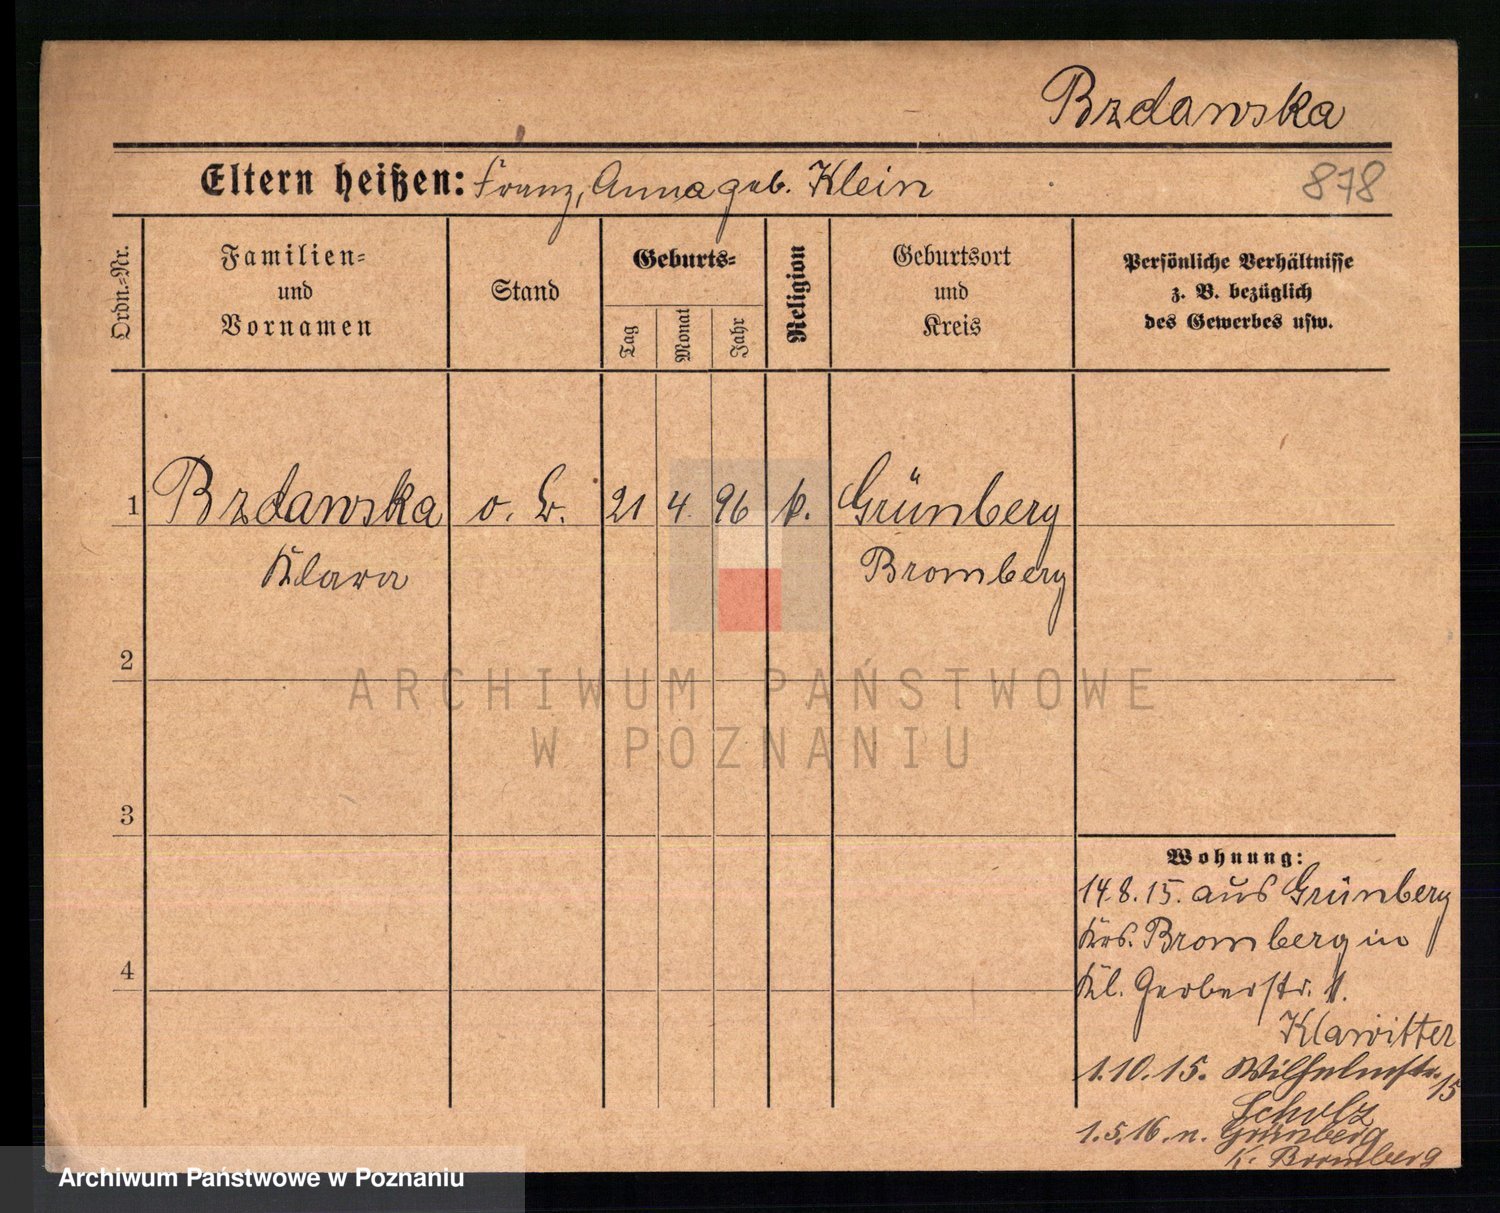 Brdawska
Eltern heißen: Franz, Anna geb. Klein
878
Ordn.-Nr.
Familien-
und
Vornamen
Stand
Geburts-
Tag
Monat
Jahr
Religion
Geburtsort
und
Kreis
Persönliche Verhältnisse
z. B. bezüglich
des Gewerbes usw.
1 Brdawska o. G. 21 4. 96 k. Grünberg
Klara Bromberg
2
3
4
Wohnung:
14.8.15. aus Grünberg
Krs. Bromberg in
Kl. Gerberstr. 1.
Klawitter
1.10.15. Wilhelmstr. 15
Scholz
1.5.16. n. Grünberg
K. Bromberg
ARCHIWUM PAŃSTWOWE
W POZNANIU
Archiwum Państwowe w Poznaniu